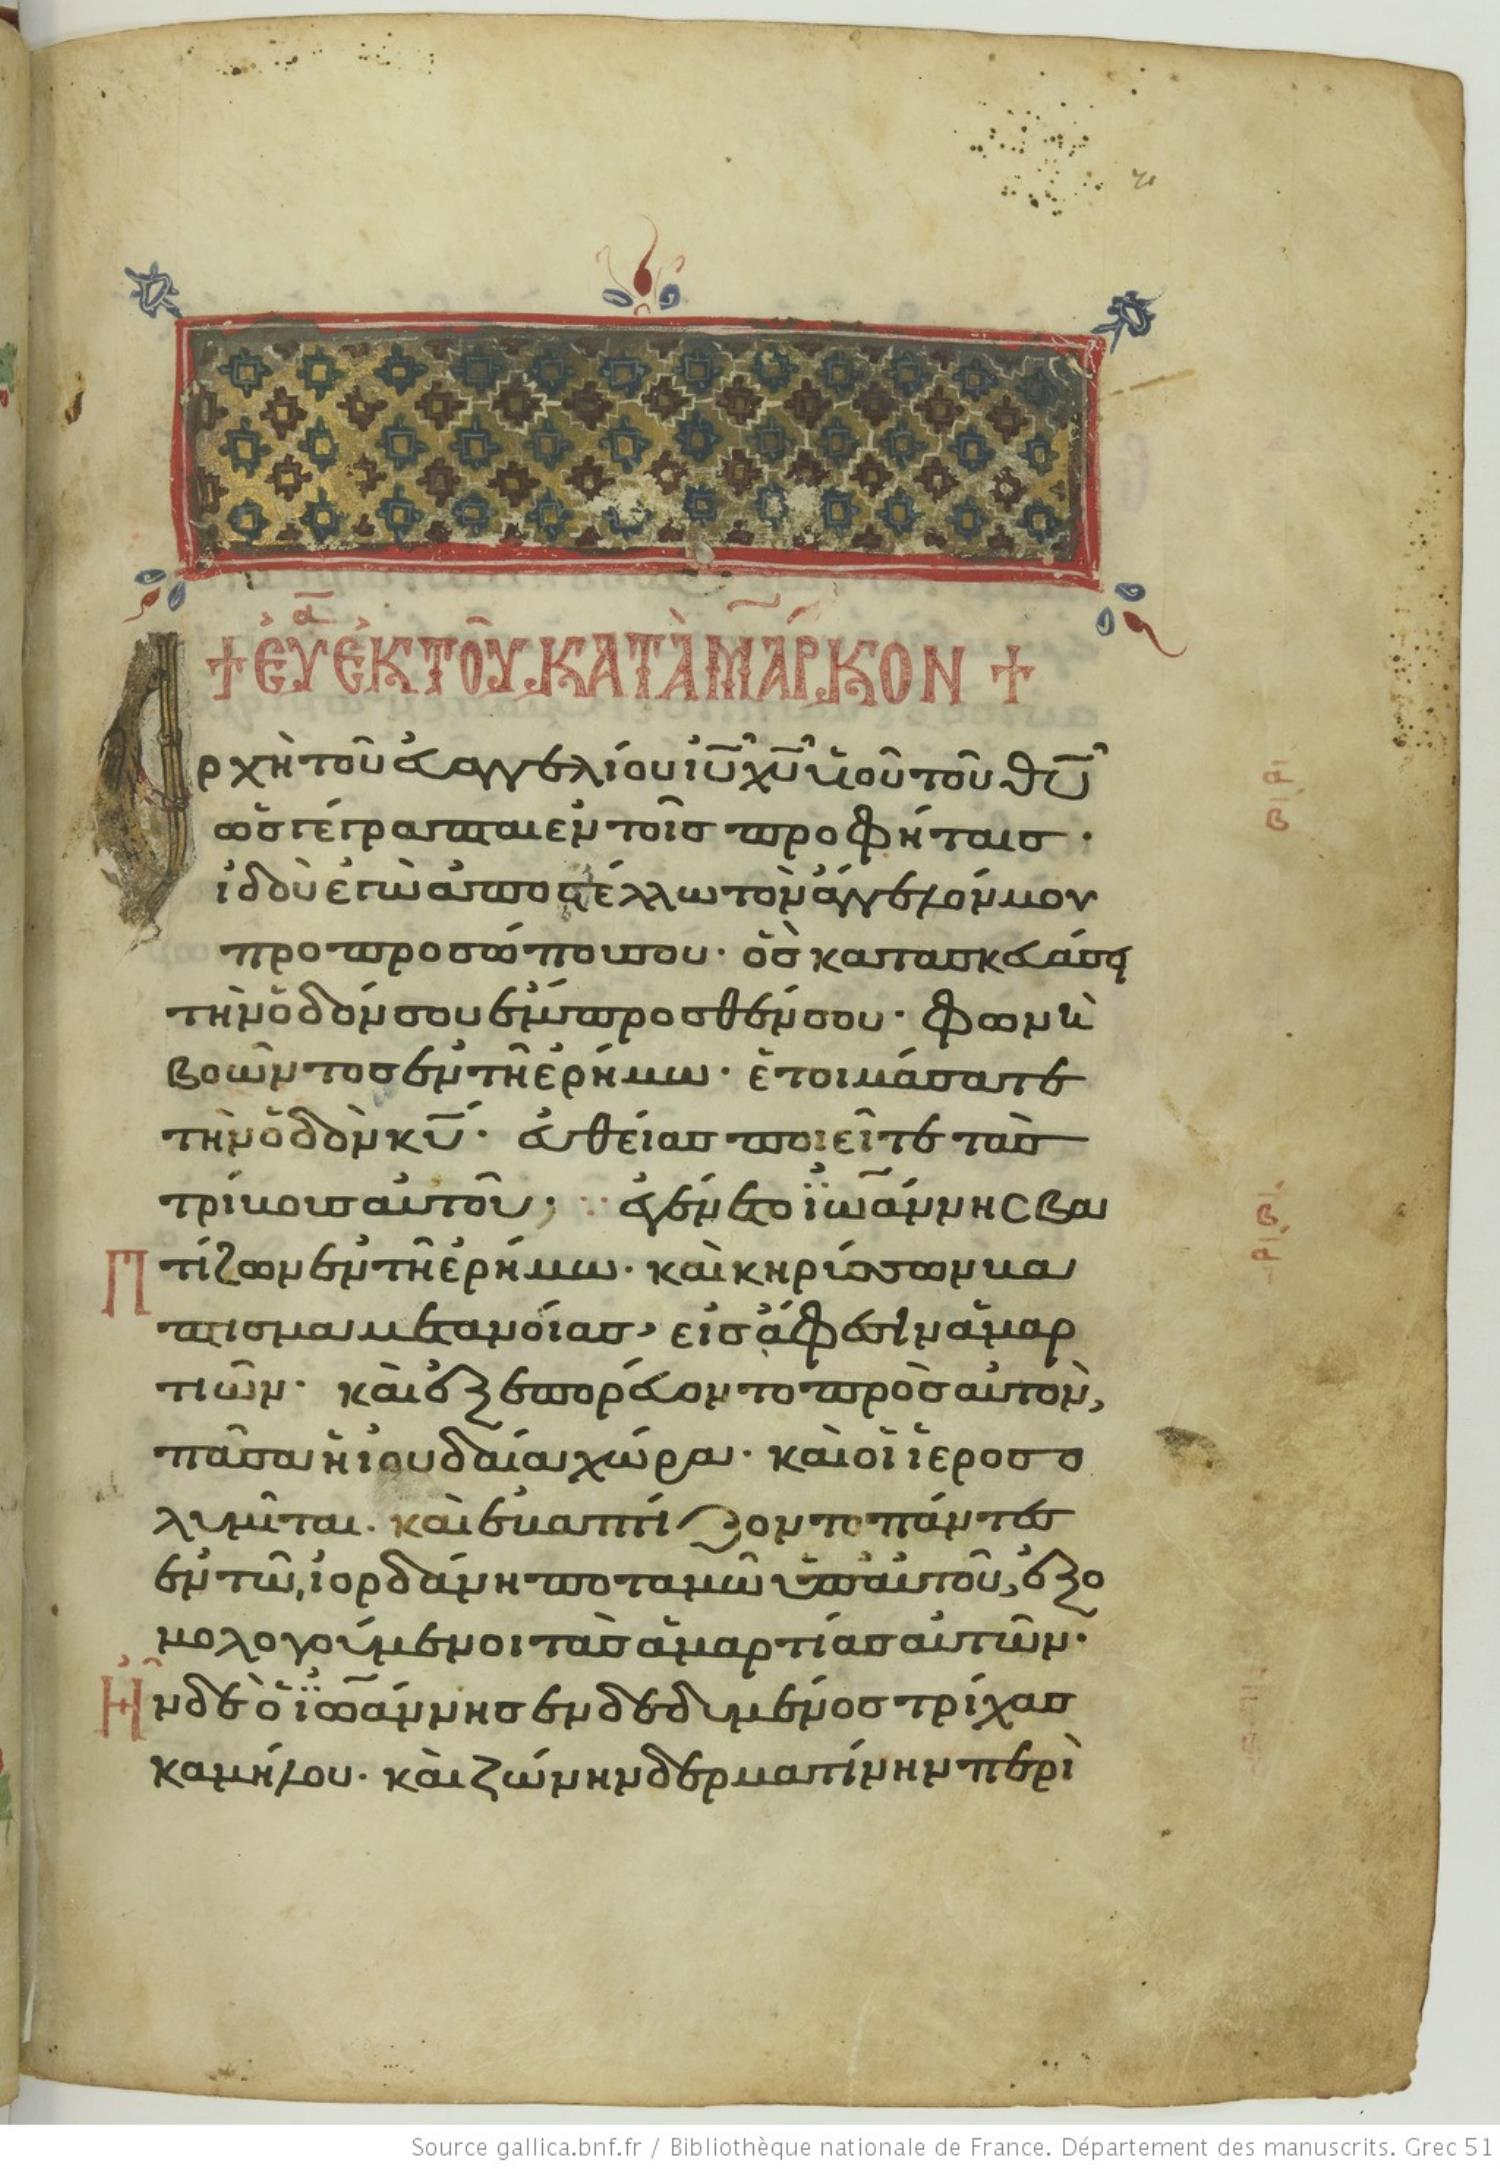 + ἐυα ἐκ τοῦ κατὰ μάρκον +
ρχὴ τοῦ ἐυαγγελίου ἰῦ χῦ ὑοῦ τοῦ θῦ
ὡς γέγραπται ἐν τοῖς προφήταις·
ἰδοὺ ἐγὼ ἀποστέλλω τὸν ἄγγελόν μου
προ προσώπου σου· ὃς κατασκευάσει
τὴν ὁδόν σου ἔμπροσθέν σου· φωνὴ
βοῶντος ἐν τῆ ἐρήμω· ἑτοιμάσατε
τὴν ὁδὸν κῦ· ἐυθείας ποιεῖτε τὰς
τρίβους αὐτοῦ; ἐγένετο ϊωάννης βα
πτίζων ἐν τῆ ἐρήμω· καὶ κηρύσσων βά
πτισμα μετανοίας, εἰς ἄφεσιν ἁμαρ
τιῶν· καὶ ἐξεπορεύοντο πρὸς αὐτὸν,
πᾶσα ἡ ἰουδαία χώρα· καὶ οἱ ἱεροσο
λυμῖται. καὶ ἐβαπτίζοντο πάντες
ἐν τῶ ἰορδάνη ποταμῶ ὑπ αὐτοῦ, ἐξο
μολογούμενοι τὰς ἁμαρτίας αὐτῶν·
Ἦν δὲ ὁ ϊωάννης ἐνδεδυμένος τρίχας
καμήλου· καὶ ζώνην δερματίνην περὶ
Source gallica.bnf.fr / Bibliothèque nationale de France. Département des manuscrits. Grec 51